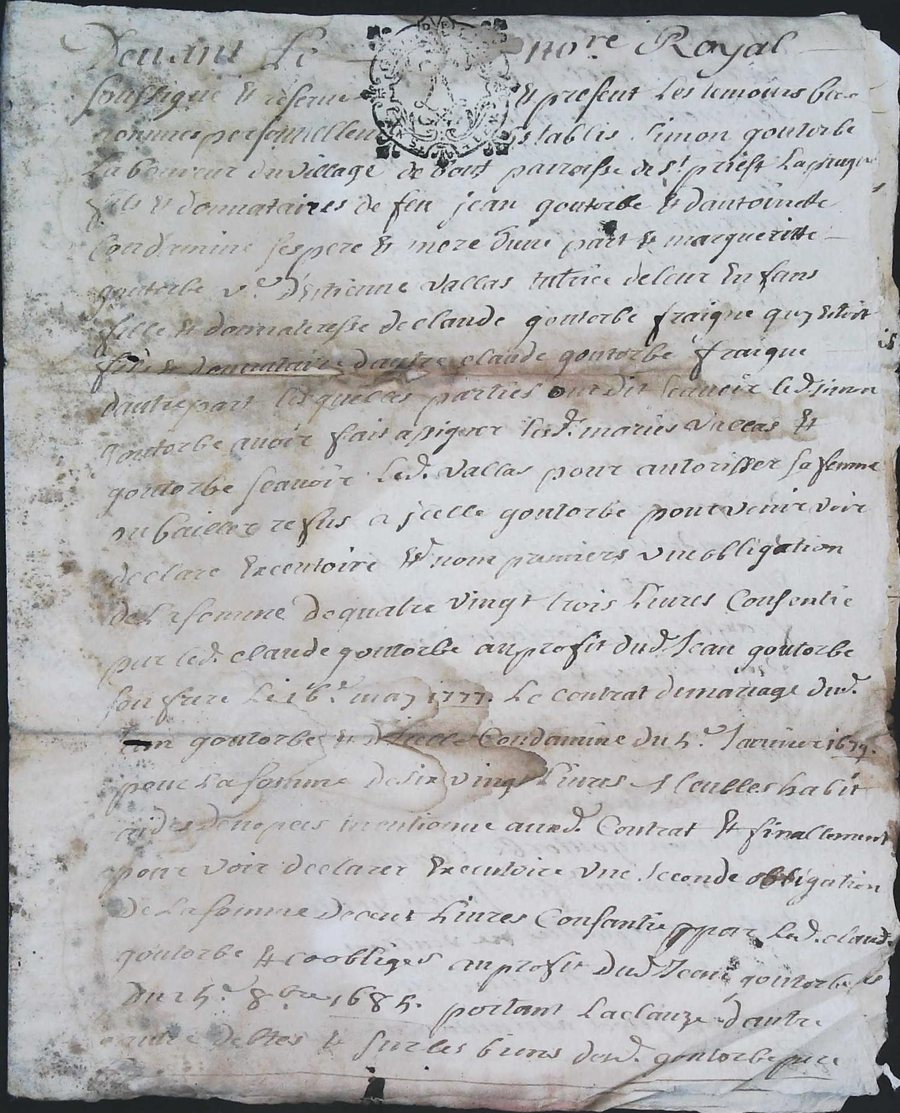 Devant Le no.re Royal
soussigné et réservé et present Les temoins bas
nommés personnellem establis Simon goutorbe
Laboureur du village de parroisse de s.t priest Laprugne
fils et donnataires de feu jean goutorbe et dantoinette
Condamine ses pere et mere d'une part et margueritte
goutorbe v.e d'estienne vallas tutrice de leur Enfans
fille et donnateresse de claude goutorbe fraigne quy estoit
fils et donnataire d'autre claude goutorbe fraigne
d'autre part lesquelles parties ont dit scauoir led. simon
goutorbe auoir fait assigner lesd. mariés vallas et
goutorbe scauoir led. vallas pour autorisser sa femme
ou bailler refus a jcelle goutorbe pour venir voir
declaré Executoire une obligation
de La somme de quatre vingt trois Liures Consentie
par led. claude goutorbe au profit dud. Jean goutorbe
son frere Le may 1777. Le contrat de mariage dud.
goutorbe et Condamine du 5.e Januier 1679.
pour La somme de six vingt Liures Meubles habit
mentionne aud. Contrat et finallement
pour voir declarer Executoire une seconde obligation
de La somme de cent Liures Consantie par Led. claude
goutorbe et coobliges au profit dud. Jean goutorbe
Du 5.e 8bre 1685. portant La clauze d'autre
debtes et sur les biens dud. goutorbe pere